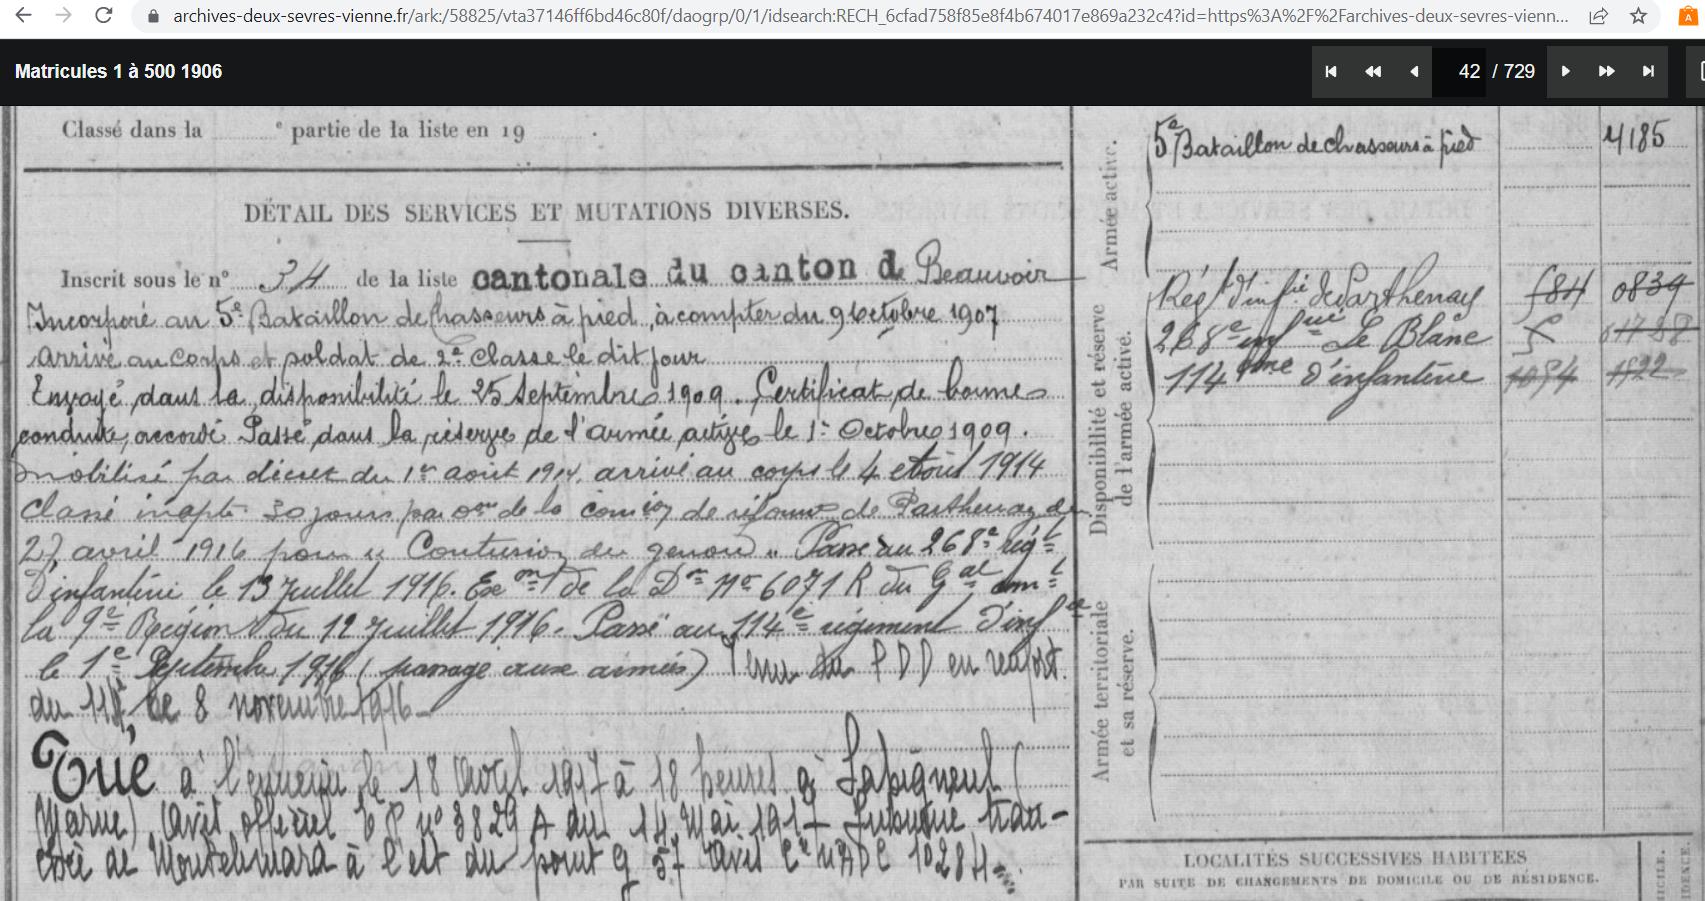 archives-deux-sevres-vienne.fr/ark:/58825/vta37146ff6bd46c80f/daogrp/0/1/idsearch:RECH_6cfad758f85e8f4b674017e869a232c4?id=https%3A%2F%2Farchives-deux-sevres-vienn...
Matricules 1 à 500 1906
42 / 729
Classé dans la e partie de la liste en 19 .
DÉTAIL DES SERVICES ET MUTATIONS DIVERSES.
Inscrit sous le n° 34 de la liste cantonale du canton de Beauvoir
Incorporé au 5e Bataillon de chasseurs à pied, à compter du 9 Octobre 1907
arrivé au corps et soldat de 2e classe le dit jour
Envoyé dans la disponibilité le 25 Septembre 1909. Certificat de bonne
conduite accordé Passé dans la réserve de l'armée active le 1er Octobre 1909.
Mobilisé par décret du 1er août 1914, arrivé au corps le 4 août 1914
Classé inapte 30 jours par de la de réforme de Parthenay du
27 avril 1916 pour " Contusion du genou " Passé au 268e régt
d'infanterie le 13 Juillet 1916. Exon de la Don No 6071 R du Gal comt
la 9e Région du 12 Juillet 1916. Passé au 114e régiment d'infie
le 1er Septembre 1916 (passage aux armées) Venu du PDD en renfort
du 114e le 8 novembre 1916
Tué à l'ennemi le 18 avril 1917 à 18 heures à Sapigneul (
Marne) (avis officiel n° 3829 A du 14 Mai 1917
à l'est du point avis 10284
Armée active.
5e Bataillon de chasseurs à pied 4185
Disponibilité et réserve
de l'armée active.
Régt d'infie de Parthenay f84 0839
268e infie Le Blanc
114ème d'infanterie 1054 1822
Armée territoriale
et sa réserve.
LOCALITÉS SUCCESSIVES HABITÉES
PAR SUITE DE CHANGEMENTS DE DOMICILE OU DE RÉSIDENCE.